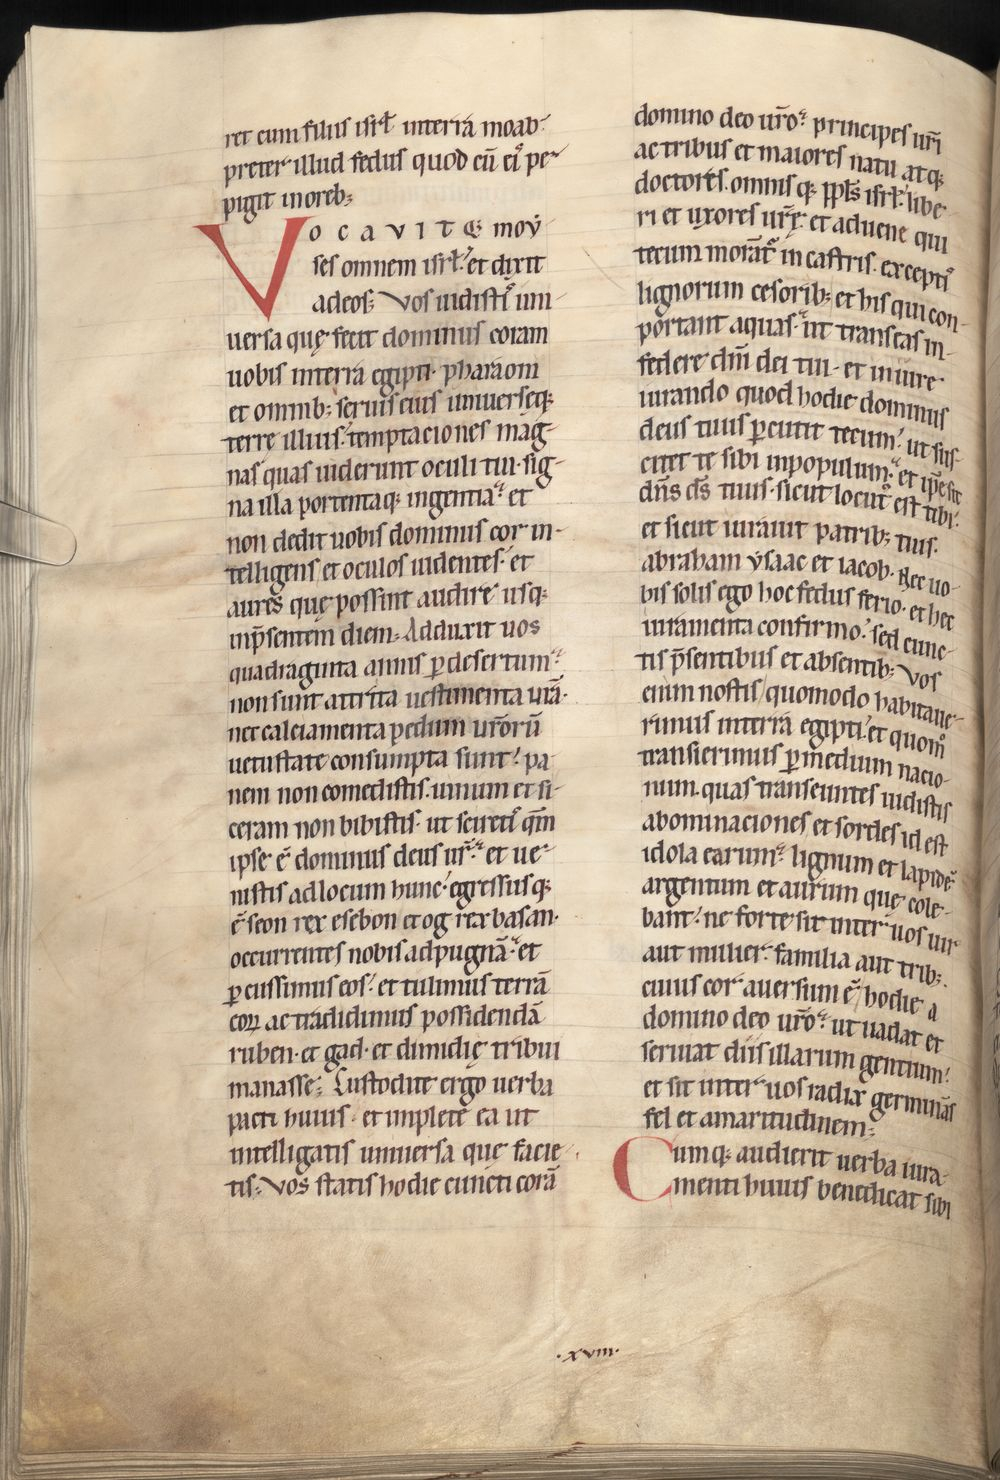 ret cum filiis isrł in terra moab
preter illud fedus quod cū eiˢ pe
pigit in oreb;
VOCAVITQ; moy
ses omnem isrł. et dixit
ad eos; Vos uidistiˢ uni
uersa quę fecit dominus coram
uobis in terra egipti. pharaoni
et omnib; seruis eius uniuersęq;
terrę illius. temptaciones mag
nas quas uiderunt oculi tui. sig
na illa portentaq; ingentia. et
non dedit uobis dominus cor in
telligens et oculos uidentes. et
aures quę possint audire usq;
in p̄sentem diem; Adduxit uos
quadraginta annis ꝑ desertum.
non sunt attrita uestimenta urā.
nec calciamenta pedum uror̄ū
uetustate consumpta sunt. pa
nem non comedistis. uinum et si
ceram non bibistis. ut sciretiˢ qm̄
ipse ē dominus deus ur̄. et ue
nistis ad locum hunc. egressusq;
ē seon rex esebon et og rex basan.
occurrentes nobis ad pugnā. et
ꝑcussimus eos. et tulimus terrā
eoꝝ ac tradidimus possidendā
ruben. et gad. et dimidię tribui
manasse; Custodite ergo uerba
pacti huius. et implete ea ut
intelligatis uniuersa que facie
tis; Vos statis hodie cuncti corā
domino deo uro. principes uri
ac tribus et maiores natu atq;
doctores. omnisq; ppłs isrł. libe
ri et uxores uręˉ. et aduene qui
tecum moratʳ in castris. exceptiˢ
lignorum cesorib; et his qui con
portant aquas. ut transeas in
federe dn̄i dei tui. et in iure
iurando quod hodie dominus
deus tuus ꝑcutit tecum. ut sus
citet te sibi in populum. et ip̄e sit
dn̄s ds̄ tuus. sicut locutˢ est tibi.
et sicut iurauit patrib; tuis.
abraham ysaac et iacob. Nec uo
bis solis ego hoc fedus ferio. et hec
iuramenta confirmo. sed cunc
tis p̄sentibus et absentib; Vos
enim nostis quomodo habitaue
rimus in terra egipti. et quom̊
transierimus ꝑ medium nacio
num. quas transeuntes uidistis
abominaciones et sordes id est
idola earum. lignum et lapidē.
argentum et aurum que cole
bant. ne forte sit inter uos uir
aut mulier. familia aut trib;.
cuius cor auersum ē hodie a
domino deo uro. ut uadat et
seruiat diis illarum gentium.
et sit inter uos radix germināˢ
fel et amaritudinem;
Cumq; audierit uerba iura
menti huius benedicat sibi
.xviii.